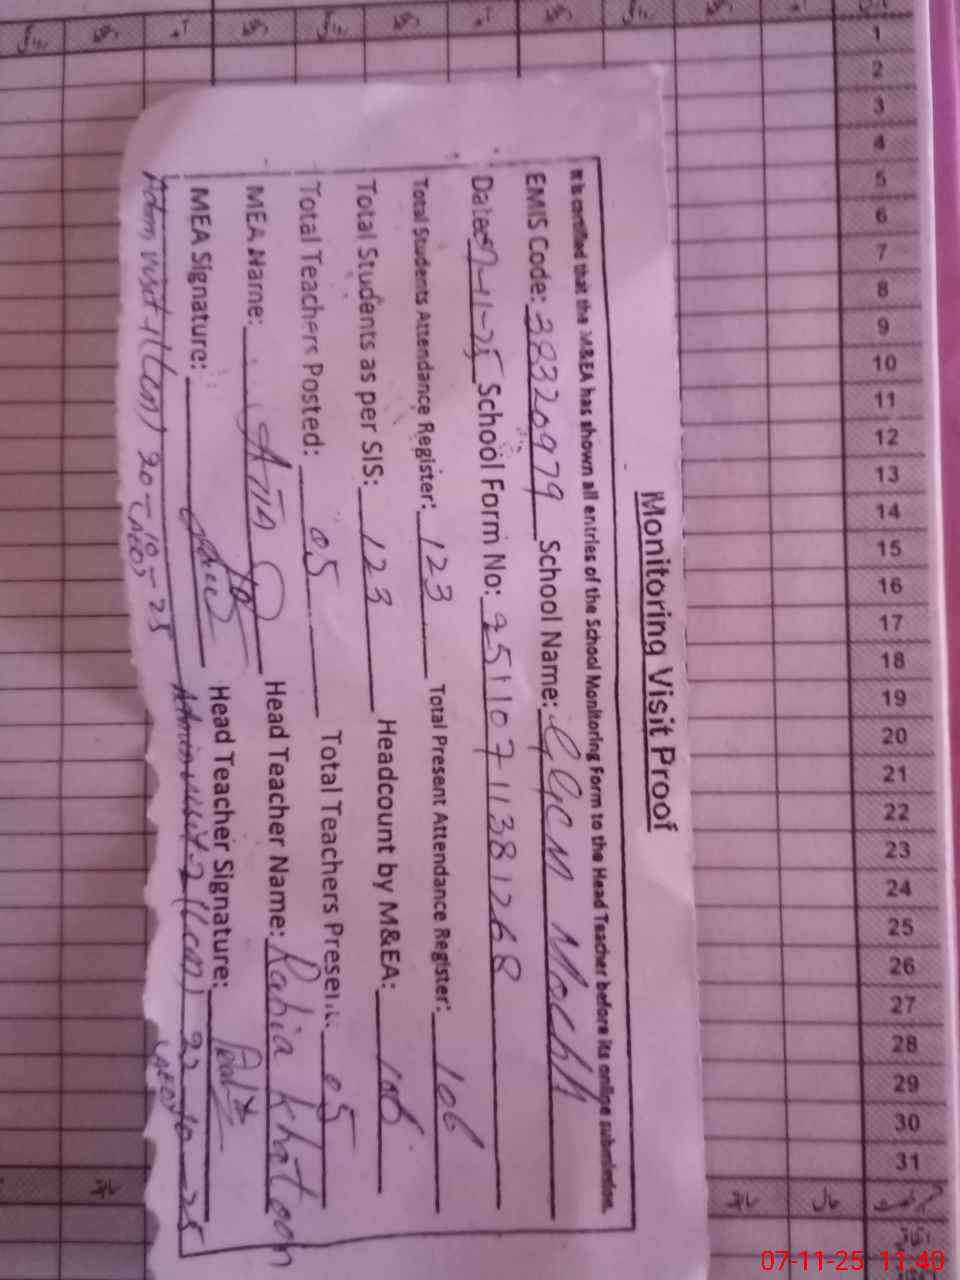 Monitoring Visit Proof
It is certified that the M&EA has shown all entries of the School Monitoring Form to the Head Teacher before its online submission.
EMIS Code: 38320979 School Name: GGCM
Date: 07-11-25 School Form No: 25110711381268
Total Students Attendance Register: 123 Total Present Attendance Register: 106
Total Students as per SIS: 123 Headcount by M&EA: 106
Total Teachers Posted: 05 Total Teachers Present: 05
MEA Name: Head Teacher Name: Rabia Khatoon
MEA Signature: Head Teacher Signature:
Admn visit-1 20-10-25 Admin visit-2 22-10-25
(AEO) (AEO)
1 2 3 4 5 6 7 8 9 10 11 12 13 14 15 16 17 18 19 20 21 22 23 24 25 26 27 28 29 30 31
07-11-25 11:40